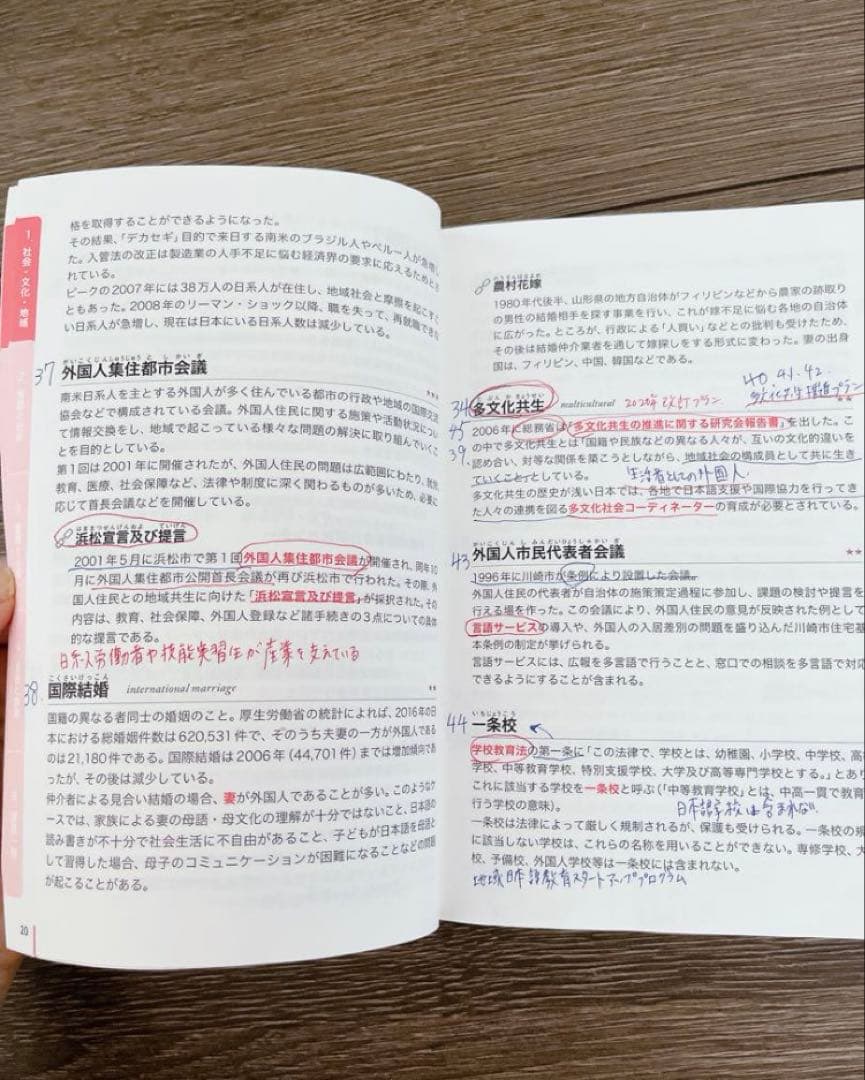 1 社会・文化・地域
格を取得することができるようになった。
その結果、「デカセギ」目的で来日する南米のブラジル人やペルー人が急増し
た。入管法の改正は製造業の人手不足に悩む経済界の要求に応えるためとさ
れている。
ピークの2007年には38万人の日系人が在住し、地域社会と摩擦を起こすこ
ともあった。2008年のリーマン・ショック以降、職を失って、再就職できな
い日系人が急増し、現在は日本にいる日系人数は減少している。
37
がいこくじんしゅうじゅうとしかいぎ
外国人集住都市会議
***
南米日系人を主とする外国人が多く住んでいる都市の行政や地域の国際交流
協会などで構成されている会議。外国人住民に関する施策や活動状況につい
て情報交換をし、地域で起こっている様々な問題の解決に取り組んでいくこ
とを目的としている。
第1回は2001年に開催されたが、外国人住民の問題は広範囲にわたり、就労、
教育、医療、社会保障など、法律や制度に深く関わるものが多いため、必要に
応じて首長会議などを開催している。
はままつせんげんおよ ていげん
浜松宣言及び提言
2001年5月に浜松市で第1回外国人集住都市会議が開催され、同年10
月に外国人集住都市公開首長会議が再び浜松市で行われた。その際、外
国人住民との地域共生に向けた「浜松宣言及び提言」が採択された。その
内容は、教育、社会保障、外国人登録など諸手続きの3点についての具体
的な提言である。
日系人労働者や技能実習生が産業を支えている
38
こくさいけっこん
国際結婚 international marriage
**
国籍の異なる者同士の婚姻のこと。厚生労働省の統計によれば、2016年の日
本における総婚姻件数は620,531件で、そのうち夫妻の一方が外国人である
のは21,180件である。国際結婚は2006年(44,701件)までは増加傾向であ
ったが、その後は減少している。
仲介者による見合い結婚の場合、妻が外国人であることが多い。このようなケ
ースでは、家族による妻の母語・母文化の理解が十分ではないこと、日本語の
読み書きが不十分で社会生活に不自由があること、子どもが日本語を母語と
して習得した場合、母子のコミュニケーションが困難になることなどの問題
が起こることがある。
20
のうそんはなよめ
農村花嫁
1980年代後半、山形県の地方自治体がフィリピンなどから農家の跡取り
の男性の結婚相手を探す事業を行い、これが嫁不足に悩む各地の自治体
に広がった。ところが、行政による「人買い」などとの批判も受けたため、
その後は結婚仲介業者を通して嫁探しをする形式に変わった。妻の出身
国は、フィリピン、中国、韓国などである。
40. 41. 42.
多文化共生推進プラン
34
たぶんかきょうせい
多文化共生 multicultural 2020年改訂プラン
45
2006年に総務省は「多文化共生の推進に関する研究会報告書」を出した。こ
39
の中で多文化共生とは「国籍や民族などの異なる人々が、互いの文化的違いを
認め合い、対等な関係を築こうとしながら、地域社会の構成員として共に生き
ていくこと」としている。
生活者としての外国人
多文化共生の歴史が浅い日本では、各地で日本語支援や国際協力を行ってき
た人々の連携を図る多文化社会コーディネーターの育成が必要とされている。
43
がいこくじんしみんだいひょうしゃかいぎ
外国人市民代表者会議
**
1996年に川崎市が条例により設置した会議。
外国人住民の代表者が自治体の施策策定過程に参加し、課題の検討や提言を
行える場を作った。この会議により、外国人住民の意見が反映された例として
言語サービスの導入や、外国人の入居差別の問題を盛り込んだ川崎市住宅基
本条例の制定が挙げられる。
言語サービスには、広報を多言語で行うことと、窓口での相談を多言語で対応
できるようにすることが含まれる。
44
いちじょうこう
一条校
学校教育法の第一条に「この法律で、学校とは、幼稚園、小学校、中学校、高
学校、中等教育学校、特別支援学校、大学及び高等専門学校とする。」とあり
これに該当する学校を一条校と呼ぶ(「中等教育学校」とは、中高一貫で教育
行う学校の意味)。
日本語学校は含まれない
一条校は法律によって厳しく規制されるが、保護も受けられる。一条校の規
に該当しない学校は、これらの名称を用いることができない。専修学校、大
校、予備校、外国人学校等は一条校には含まれない。
地域日本語教育スタートアッププログラム